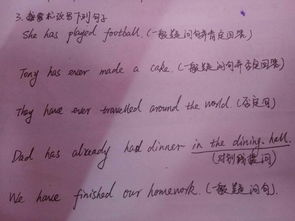 3. 按要求改写下列句子
She has played football. (一般疑问句并肯定回答)
Tony has ever made a cake. (一般疑问句并否定回答)
They have ever travelled around the world. (否定句)
Dad has already had dinner in the dining hall.
(对划线提问)
We have finished our homework. (一般疑问句).